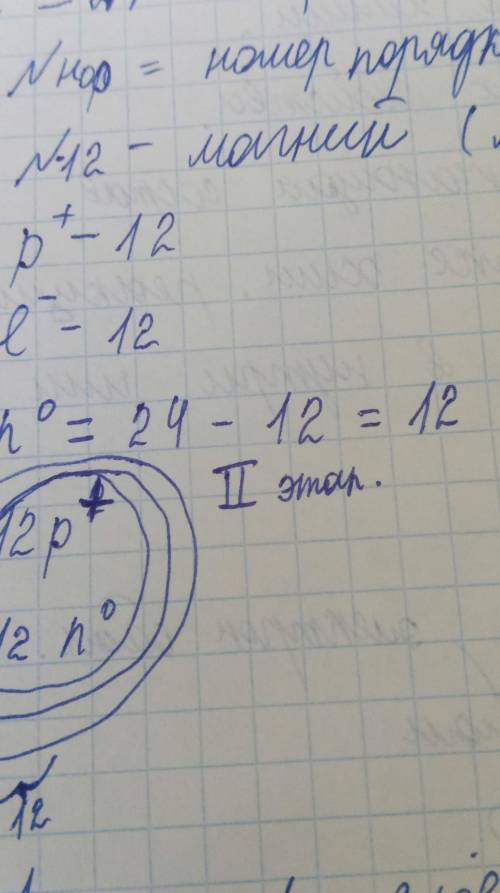 Nнор = номер порядк
N-12 - магний (
p⁺ - 12
e⁻ - 12
n⁰ = 24 - 12 = 12
II этап.
12p⁺
12 n⁰
12